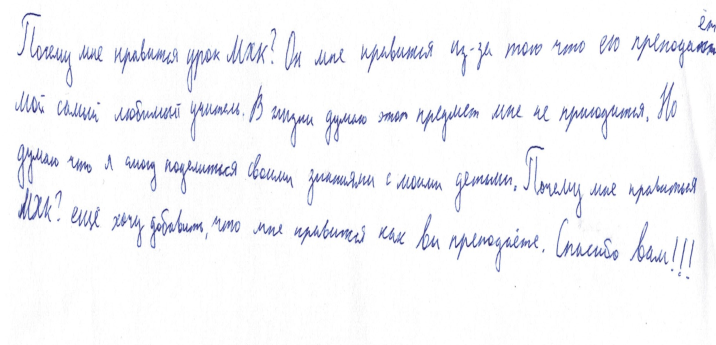 Почему мне нравится урок МХК? Он мне нравится из-за того что его преподаёт
мой самый любимый учитель. В жизни думаю этот предмет мне не пригодится. Но
думаю что я смогу поделиться своими знаниями с моими детьми. Почему мне нравиться
МХК? ещё хочу добавить, что мне нравится как вы преподаёте. Спасибо вам!!!